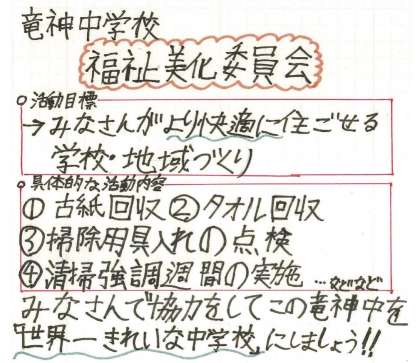 竜神中学校
福祉美化委員会
○活動目標
→みなさんがより快適に住ごせる
学校・地域づくり
○具体的な活動内容
①古紙回収②タオル回収
③掃除用具入れの点検
④清掃強調週間の実施…などなど
みなさんで協力をしてこの竜神中を
『世界一きれいな中学校』にしましょう!!